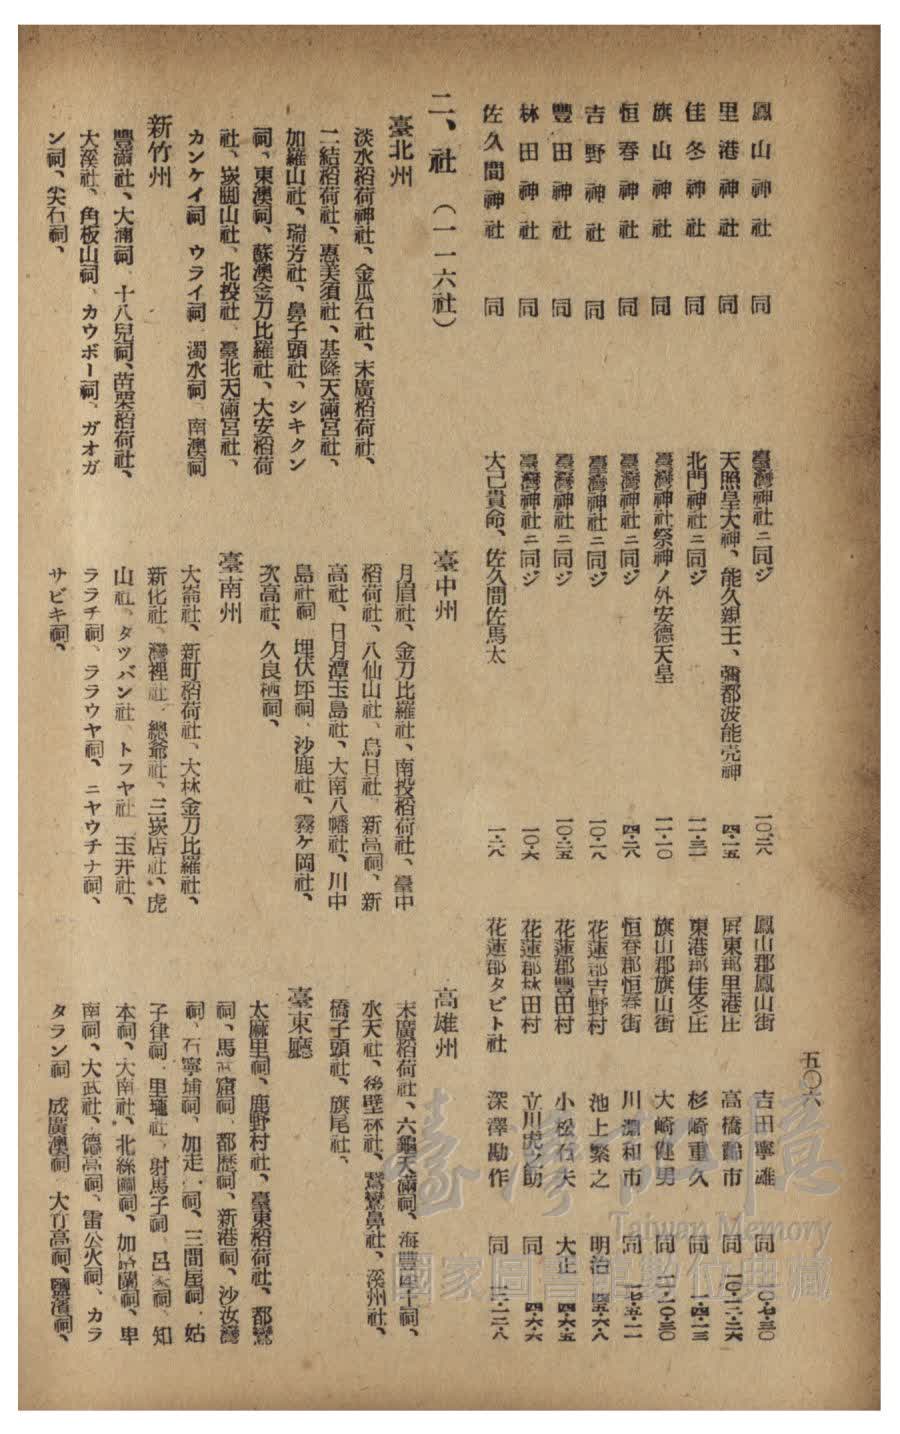 五〇六
鳳山神社 同 臺灣神社ニ同ジ 一〇・二八 鳳山郡鳳山街 吉田寧雄 同 一〇・七・三〇
里港神社 同 天照皇大神、能久親王、彌都波能売神 四・一五 屏東郡里港庄 高橋齢市 同 一〇・一二・二六
佳冬神社 同 北門神社ニ同ジ 一一・三一 東港郡佳冬庄 杉崎重久 同 一一・四・一三
旗山神社 同 臺灣神社祭神ノ外安德天皇 一一・一〇 旗山郡旗山街 大崎健男 同 一一・一〇・三〇
恒春神社 同 臺灣神社ニ同ジ 四・二八 恒春郡恒春街 川淵和市 同 一七・五・一一
吉野神社 同 臺灣神社ニ同ジ 一〇・一八 花蓮郡吉野村 池上繁之 明治 四五・六・八
豐田神社 同 臺灣神社ニ同ジ 一〇・二五 花蓮郡豐田村 小松石夫 大正 四・六・五
林田神社 同 臺灣神社ニ同ジ 一〇・六 花蓮郡林田村 立川虎之助 同 四・六・六
佐久間神社 同 大己貴命、佐久間佐馬太 一・二八 花蓮郡タビト社 深澤勘作 同 一二・一二・八
二、社（一一六社）
臺北州
淡水稻荷神社、金瓜石社、末廣稻荷社、
二結稻荷社、惠美須社、基隆天滿宮社、
加羅山社、瑞芳社、鼻子頭社、シキクン
祠、東澳祠、蘇澳金刀比羅社、大安稻荷
社、崁脚山社、北投社 臺北天滿宮社、
カンケイ祠 ウライ祠 濁水祠 南澳祠
新竹州
豐滿社、大湳祠 十八兒祠、苗栗稻荷社、
大溪社、角板山祠、カウボー祠、ガオガ
ン祠、尖石祠、
臺中州
月眉社、金刀比羅社、南投稻荷社、臺中
稻荷社、八仙山社、烏日社 新高祠、新
高社、日月潭玉島社、大南八幡社、川中
島社祠 埋伏坪祠 沙鹿社、霧ケ岡社、
次高社、久良栖祠、
臺南州
大崙社、新町稻荷社、大林金刀比羅社、
新化社、灣裡社 總爺社、三崁店社、虎
山社、タツバン社 トフヤ社 玉井社、
ララチ祠、ララウヤ祠、ニヤウチナ祠、
サビキ祠、
高雄州
末廣稻荷社、六龜天滿祠、海豐
水天社、後壁林社、鵞鑾鼻社、溪州社、
橋子頭社、旗尾社、
臺東廳
太麻里祠、鹿野村社、臺東稻荷社、都鸞
祠、馬武窟祠 都歷祠、新港祠、沙汝灣
祠、石寧埔祠、加走灣祠、三間屋祠、姑
子律祠 里壠社 射馬子祠 呂家祠 知
本祠、大南社、北絲鬮祠、加路蘭祠、卑
南祠、大武社、德高祠、雷公火祠、カラ
タラン祠 成廣澳祠 大竹高祠、鹽濱祠、
臺灣記憶
Taiwan Memory
國家圖書館數位典藏